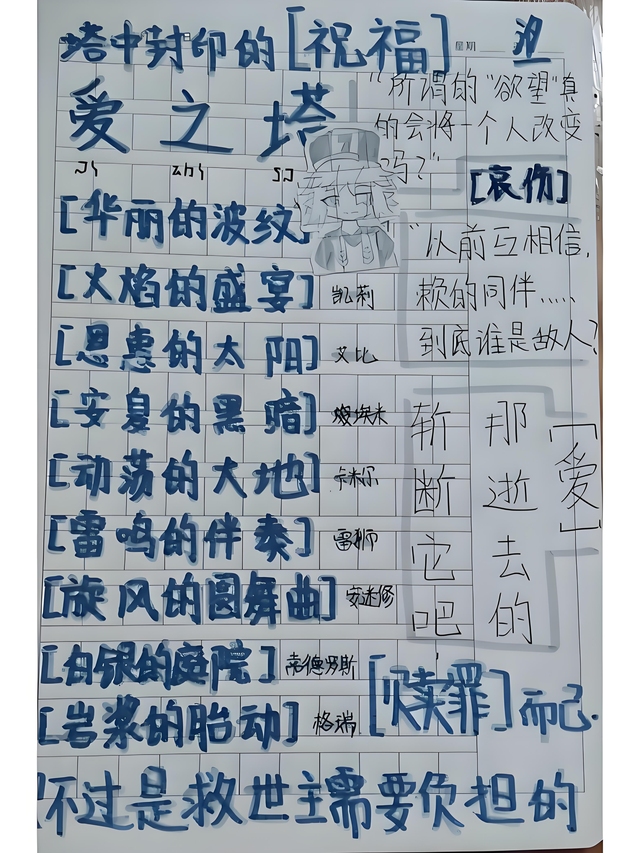 塔中封印的[祝福]
星期
爱之塔
"所谓的"欲望"真
的会将一个人改变
吗?"
[哀伤]
[华丽的波纹]
"以前互相信,
赖的同伴.....
到底谁是敌人?
[火焰的盛宴] 凯莉
[恩惠的太阳] 艾比
[安息的黑暗] 埃米
[动荡的大地] 卡米尔
[雷鸣的伴奏] 雷狮
[旋风的圆舞曲] 安迷修
[白银的庭院] 德罗斯
[岩浆的胎动] 格瑞
「爱」
那逝去的
斩断它吧
[赎罪]而已.
不过是救世主需要负担的